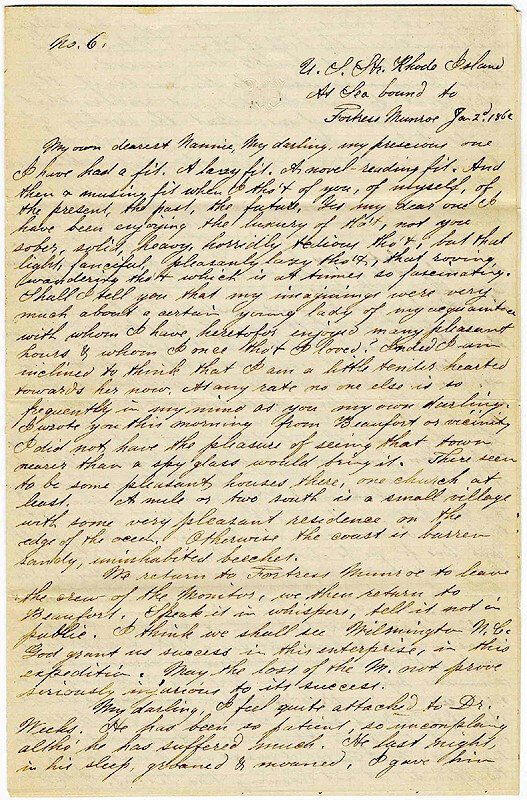 No. 6.
U. S. Str. Rhode Island
At Sea bound to
Fortress Munroe Jan 2d. 186
My own dearest Nannie, My darling, my prescious one
I have had a fit. A lazy fit. A novel-reading fit. And
then a musing fit when I tho't of you, of myself, of
the present, the past, the future. Yes my dear one I
have been enjoying the luxury of tho't not you
sober, solid, heavy, horridly tedious tho't, but that
light, fanciful pleasantly lazy tho't, that roving
wandering tho't which is at times so fascinating.
Shall I tell you that my imaginings were very
much about a certain young lady of my acquaintance
with whom I have heretofor enjoyed many pleasant
hours & whom I once tho't I loved? Indeed I am
inclined to think that I am a little tender hearted
towards her now. At any rate no one else is so
frequently in my mind as you my own darling.
I wrote you this morning from Beaufort or vicinity
I did not have the pleasure of seeing that town
nearer than a spy glass would bring it. There seem
to be some pleasant houses there, one church at
least. A mile or two south is a small village
with some very pleasant residence on the
edge of the ocean. Otherwise the coast is barren
sandy, uninhabited beeches.
We return to Fortress Munroe to leave
the crew of the Monitor, we then return to
Beaufort. Speak it in whispers, tell it not in
public. I think we shall see Wilmington N. C.
God grant us success in this enterprise, in this
expedition. May the loss of the M. not prove
seriously injurious to its success.
My darling, I feel quite attached to Dr.
Weeks. He has been so patient, so uncomplaing
altho' he has suffered much. He last night,
in his sleep, groaned & moaned, I gave him